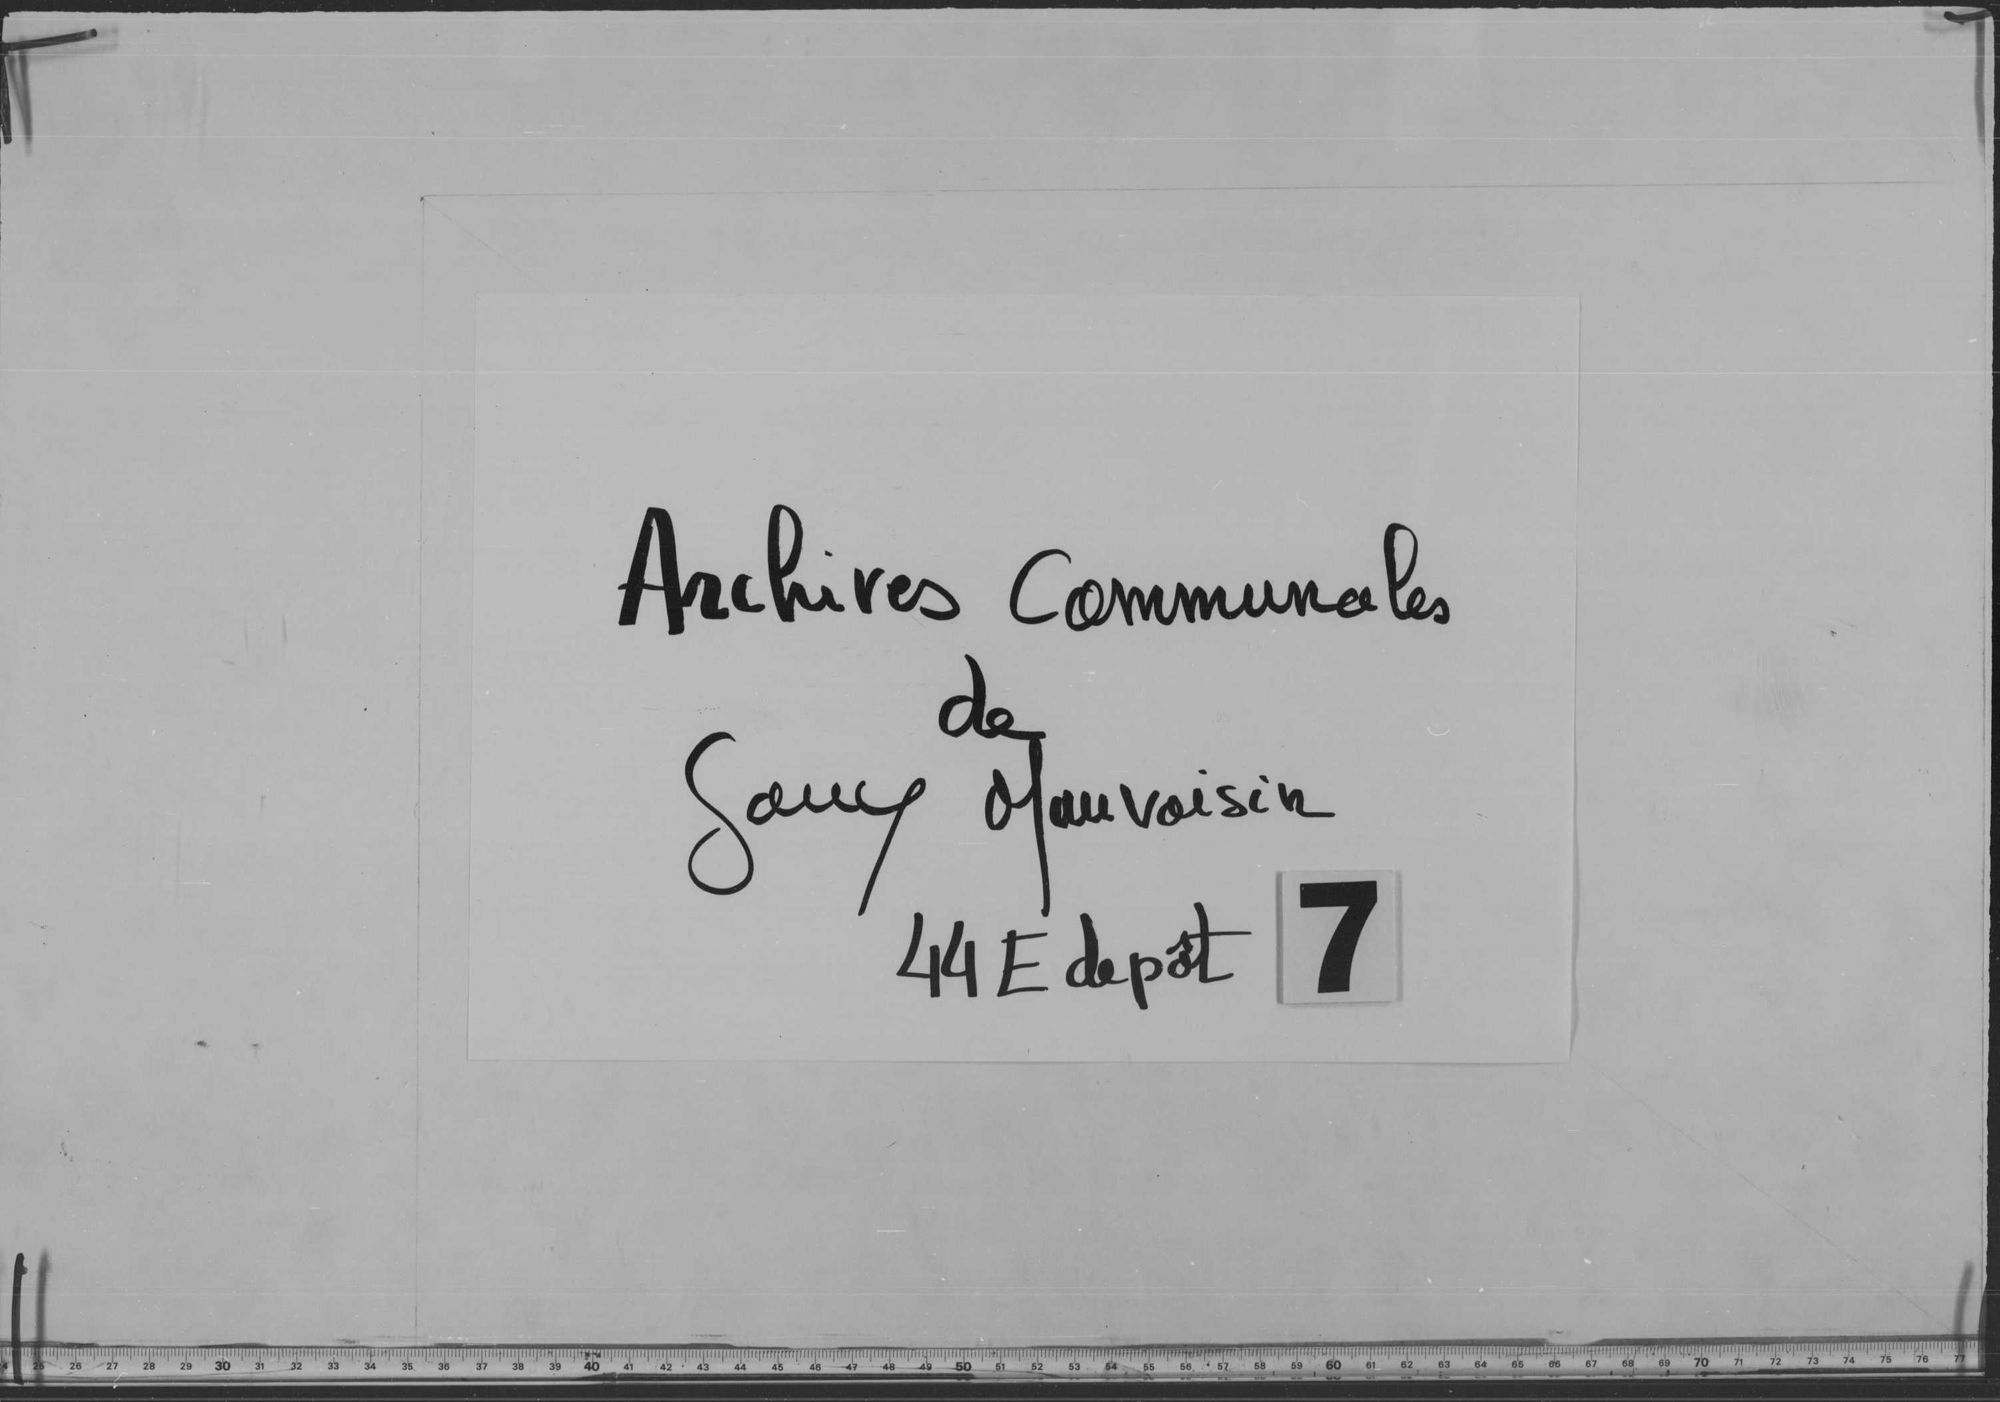 Archives Communales
de
Jouy Mauvoisin
44 E depôt 7
25 26 27 28 29 30 31 32 33 34 35 36 37 38 39 40 41 42 43 44 45 46 47 48 49 50 51 52 53 54 55 56 57 58 59 60 61 62 63 64 65 66 67 68 69 70 71 72 73 74 75 76 77